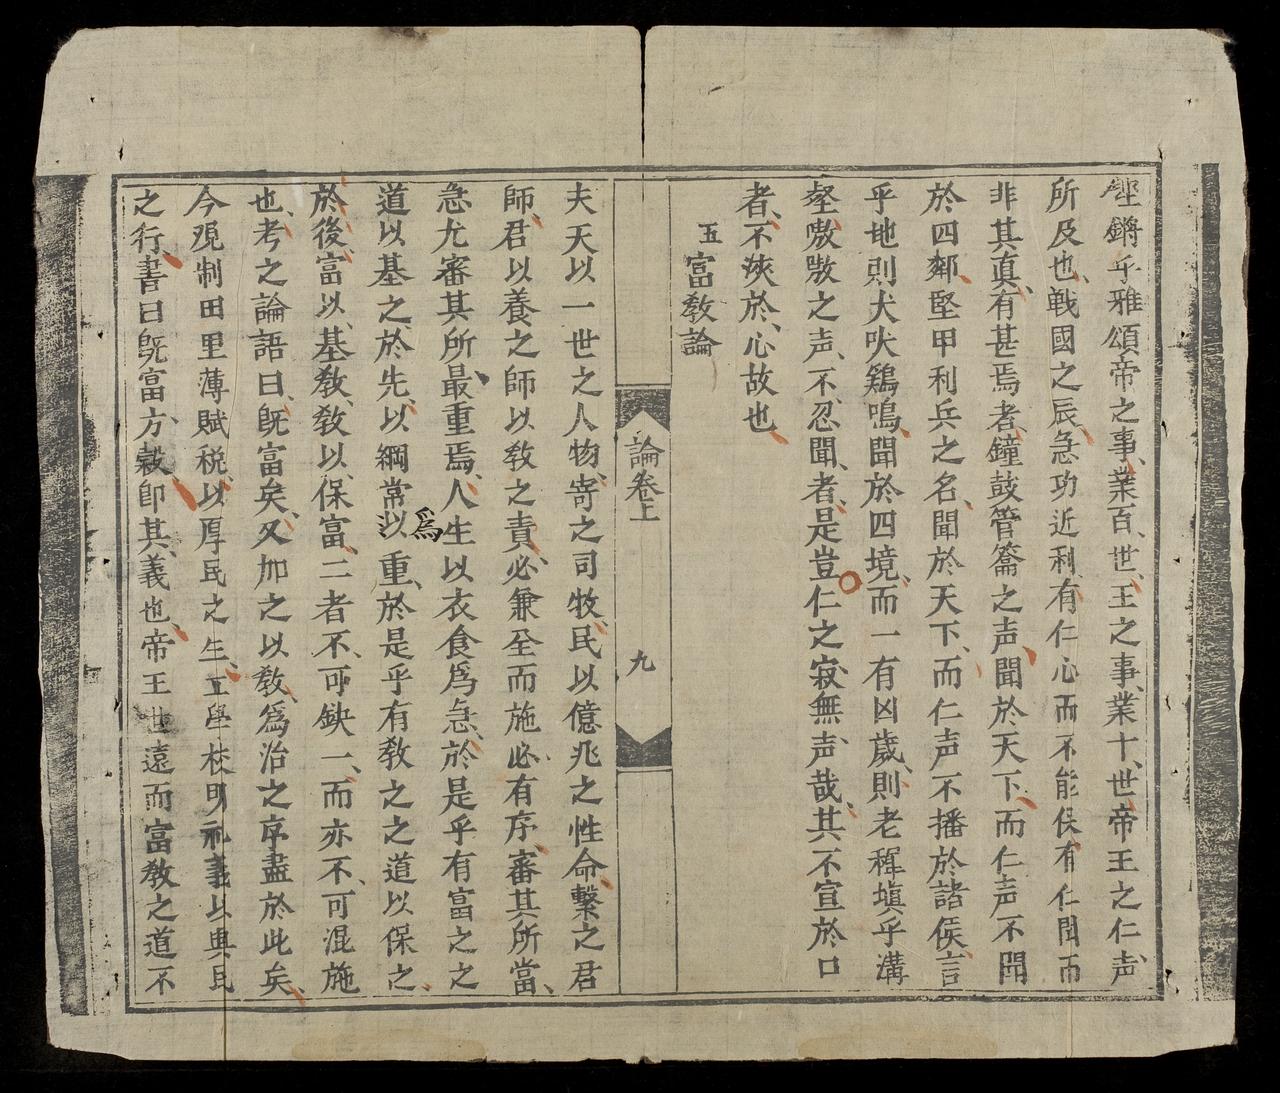 鏗鏘乎雅頌帝之事業百世王之事業十世帝王之仁声
所及也戦國之辰急功近利有仁心而不能侯有仁聞而
非其真有甚焉者鐘鼓管籥之声聞於天下而仁声不聞
於四鄰堅甲利兵之名聞於天下而仁声不播於諸侯言
乎地則犬吠鷄鳴聞於四境而一有凶歲則老穉塡乎溝
壑嗷嗷之声不忍聞者是豈仁之寂無声哉其不宣於口
者不浹於心故也
五富教論
論卷上
九
夫天以一世之人物寄之司牧民以億兆之性命繫之君
師君以養之師以教之責必兼至而施必有序審其所當
急尤審其所最重焉人生以衣食爲急於是乎有富之之
道以基之於先以綱常以爲重於是乎有教之之道以保之
於後富以基教教以保富二者不可缺一而亦不可混施
也考之論語曰旣富矣又加之以教爲治之序盡於此矣
今观制田里薄賦税以厚民之生立學校明礼義以興民
之行書曰旣富方穀卽其義也帝王世遠而富教之道不